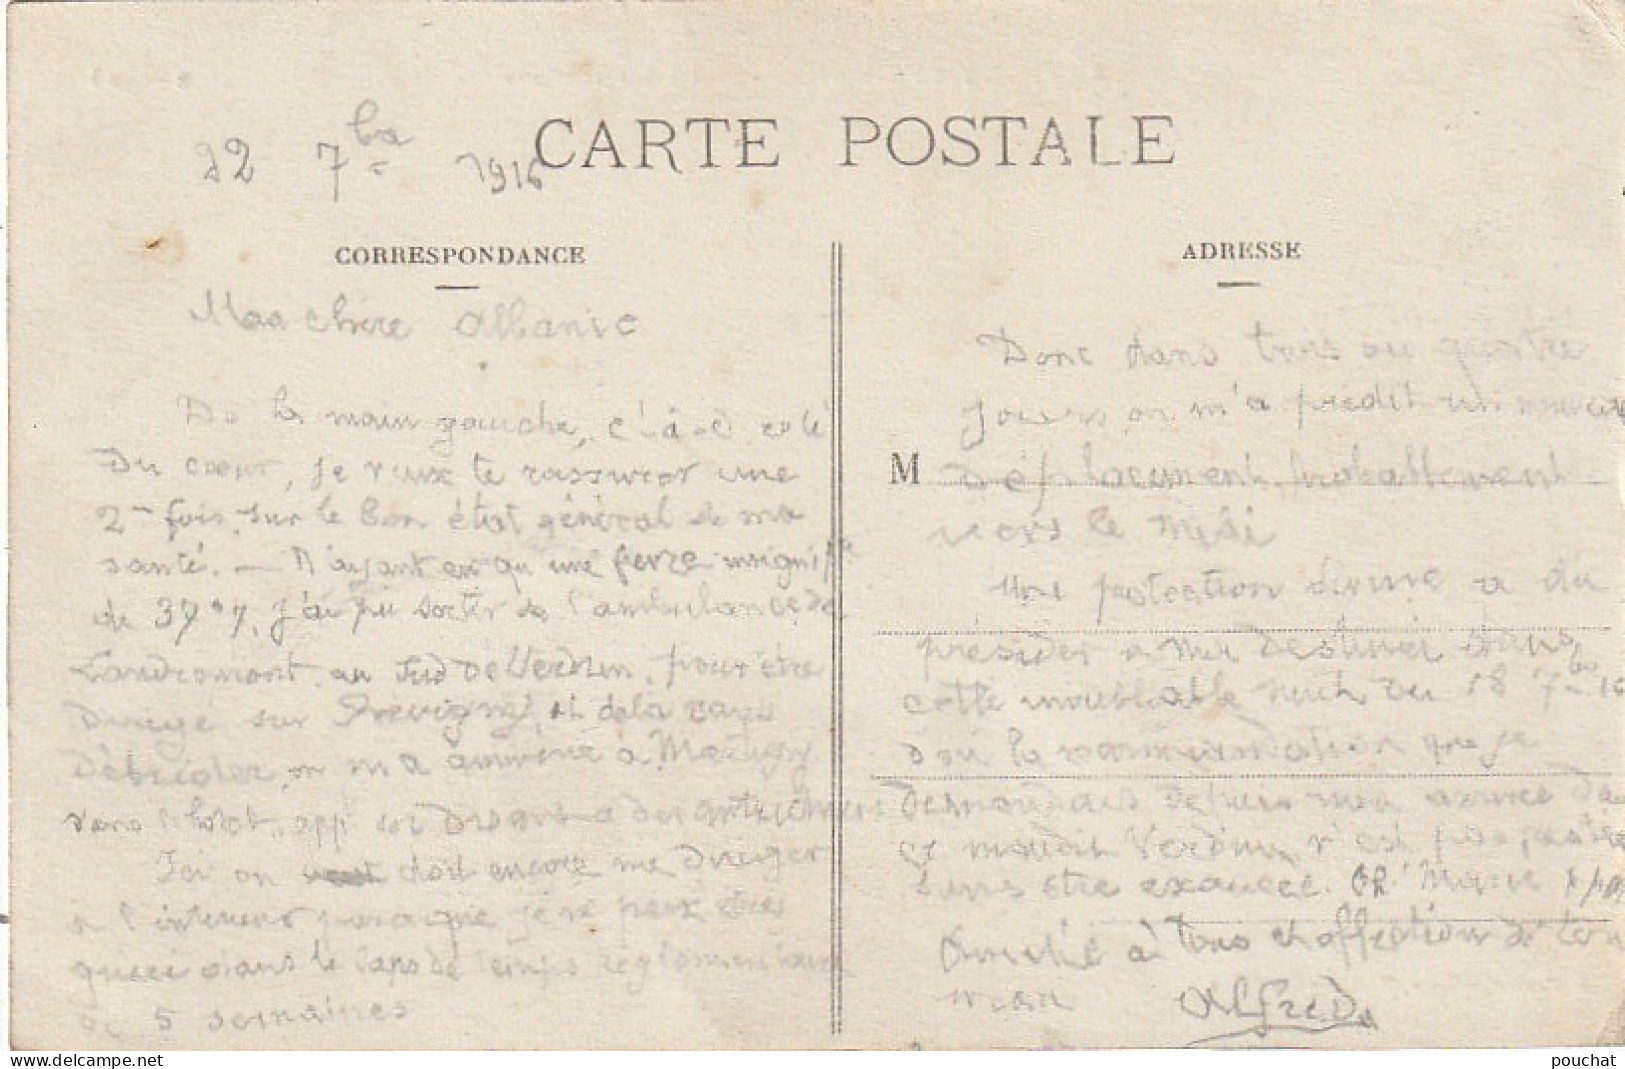 22 7bre 1916
CARTE POSTALE
CORRESPONDANCE
Ma chère Albanie
De la main gauche, c'-à-d côté
du coeur, je veux te rassurer une
2e fois sur le bon état général de ma
santé. — N'ayant eu qu'une fièvre insignifte
de 37°7, j'ai pu sortir de l'ambulance de
Landremont au Sud de Verdun, pour être
dirigé sur Revigny, et de là
on m'a amené à
dans l'hôpt
Ici on doit encore me diriger
à l'intérieur parce que je ne peux être
guéri dans le laps de temps réglementaire
de 5 semaines
ADRESSE
Donc dans trois ou quatre
jours on m'a prédit un nouveau
M déplacement, probablement
vers le Midi
Une protection divine a dû
présider à ma destinée dans
cette inoubliable nuit du 18 7bre 16
d'où la que je
demandais depuis mon arrivée dans
ce maudit Verdun n'est pas restée
sans être exaucée. Oh! Merci
Amitié à tous et affection de ton
Alfred
pouchat